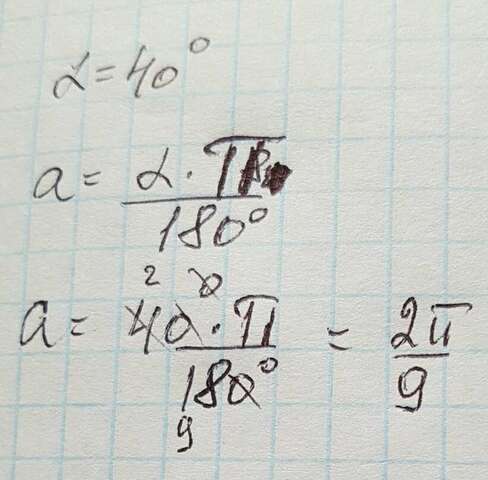 α = 40°
a = α · π / 180°
a = 40° · π / 180° = 2π / 9